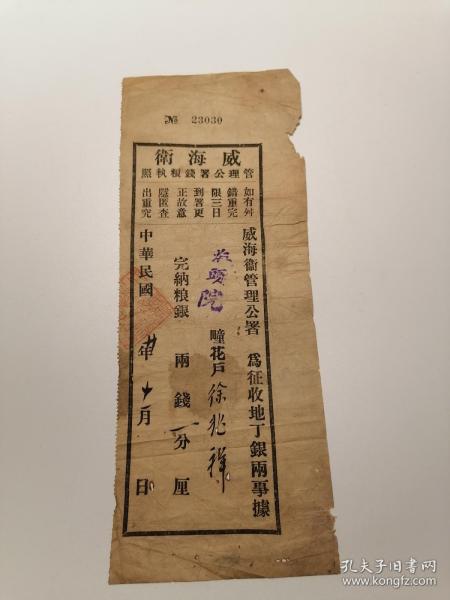 № 23030
威海衛
管理公署錢糧執照
如有舛
錯重完
限三日
到署更
正故意
隱匿查
出重究
威海衞管理公署 為征收地丁銀兩事據
疃花戶徐兆祥
完納粮銀 兩 錢一分 厘
中華民國 年十月 日
孔夫子旧书网
www.kongfz.com